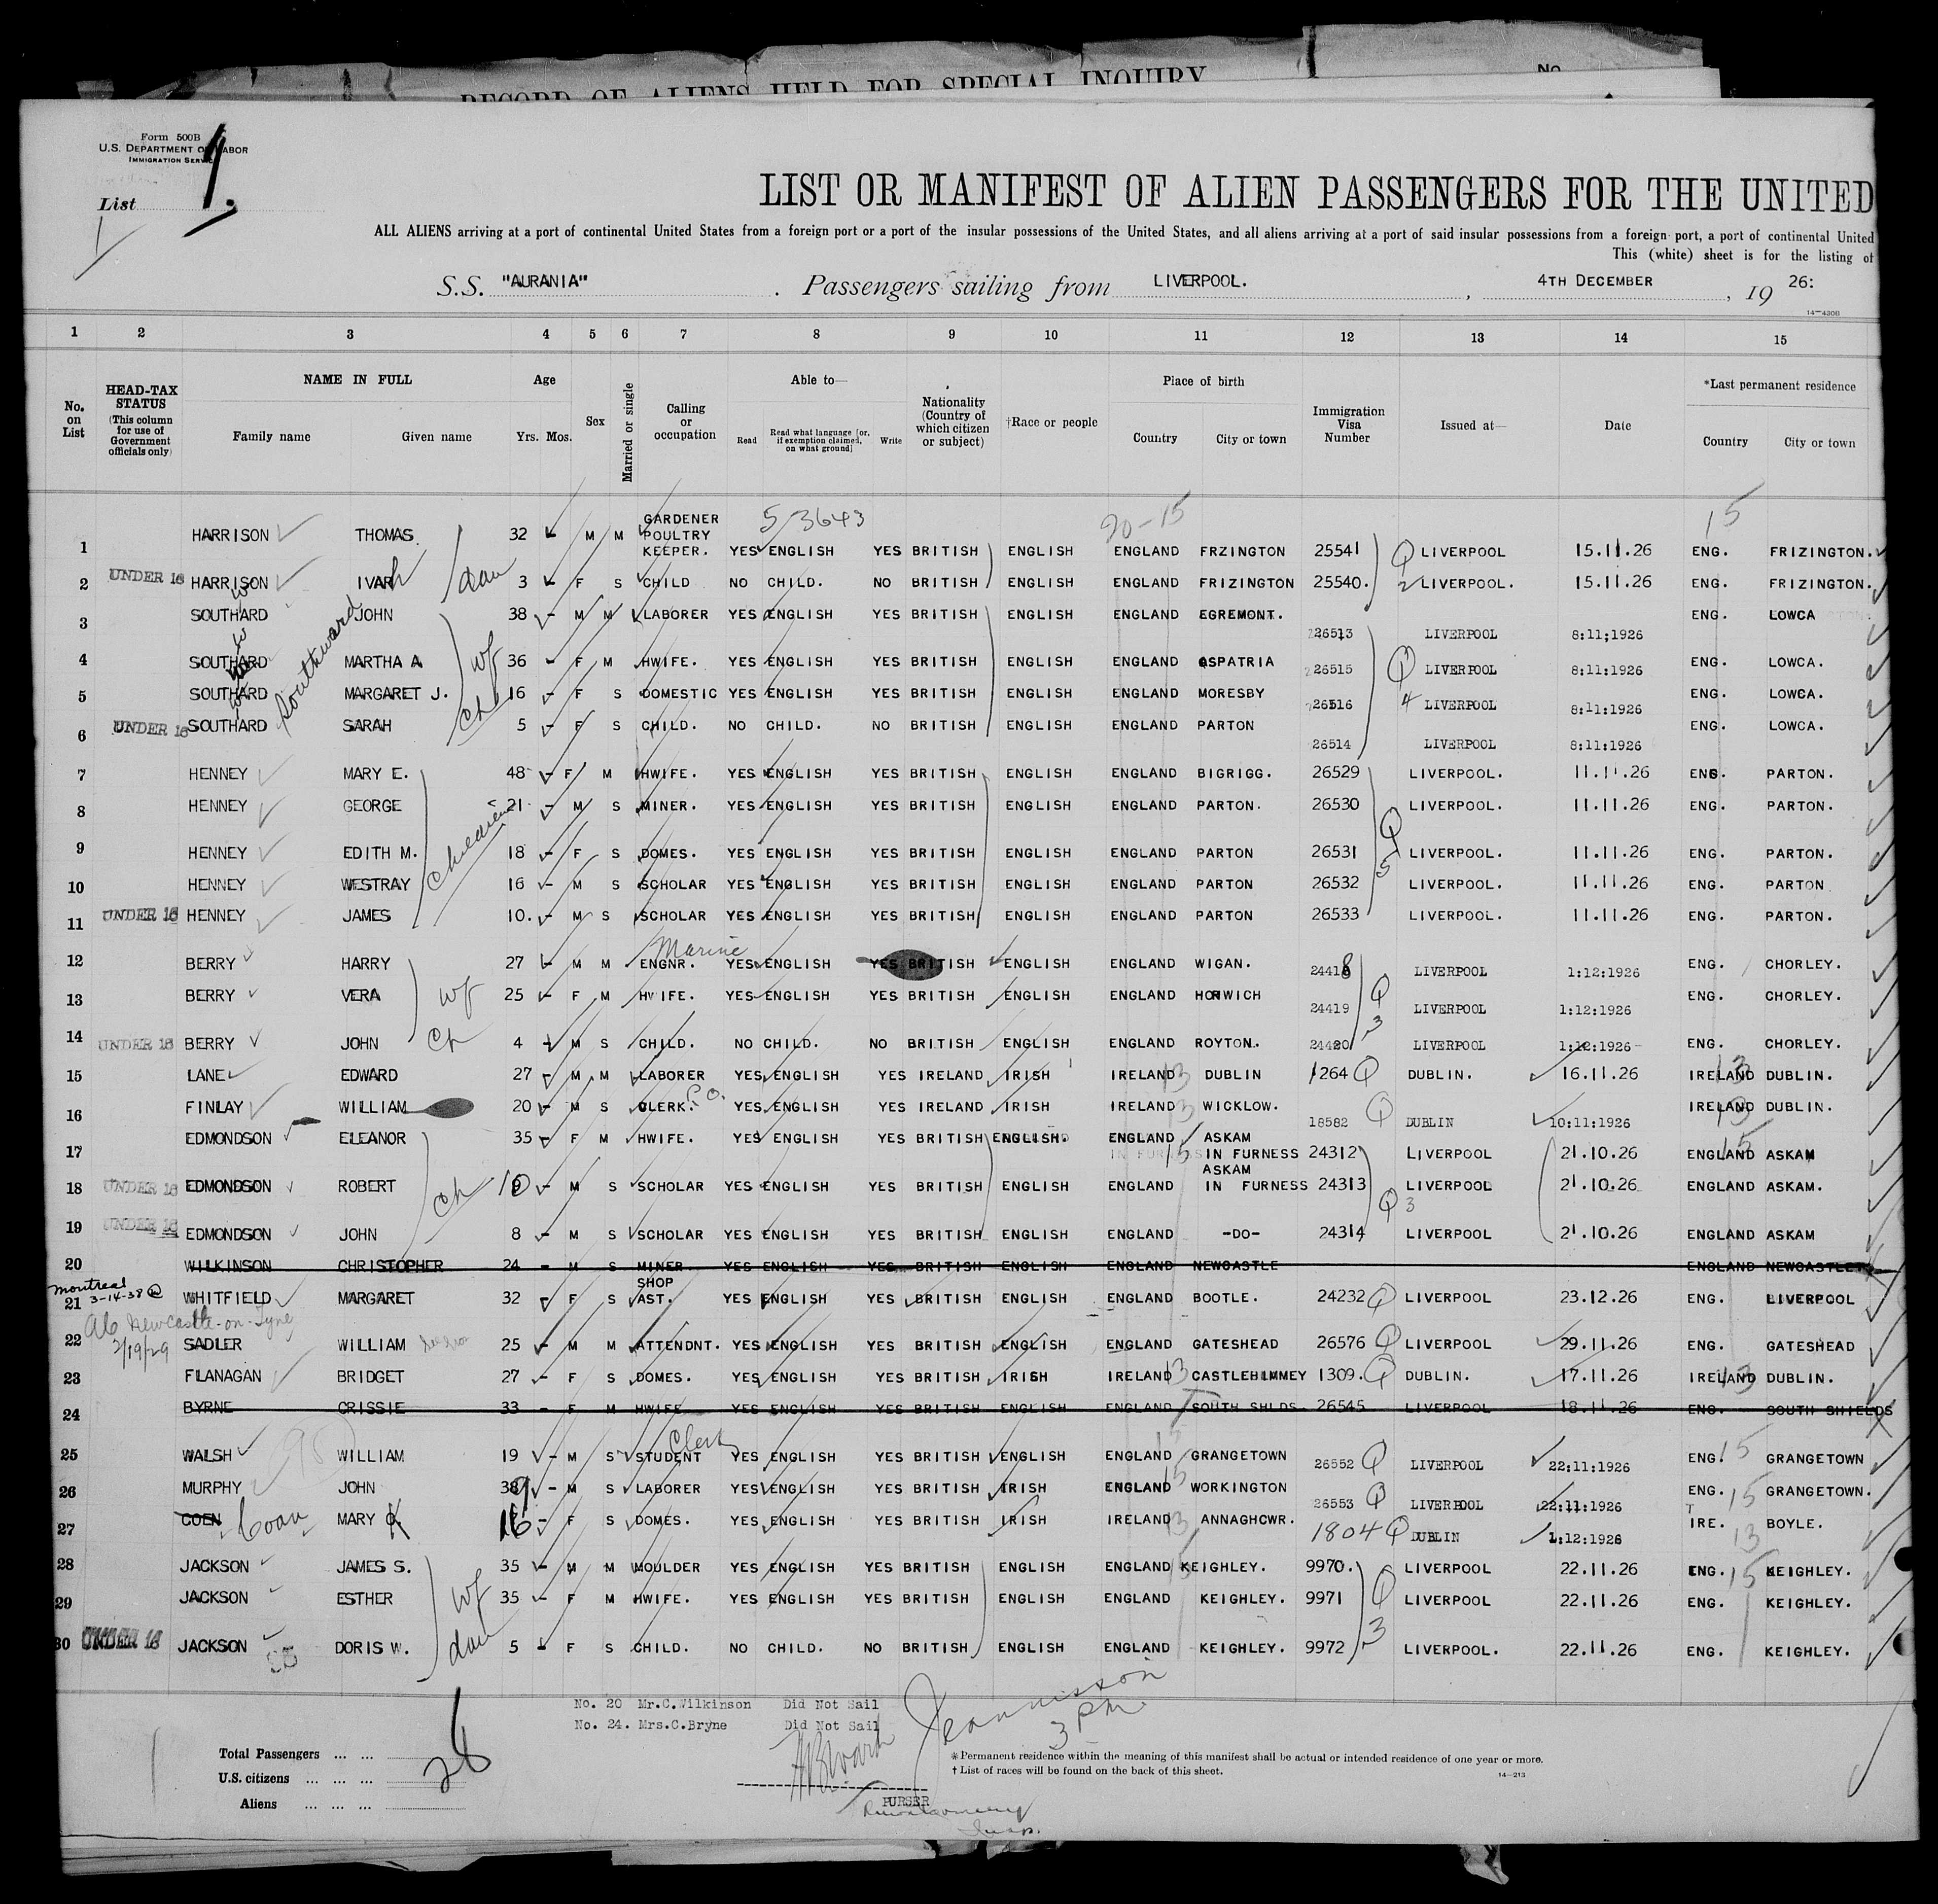 RECORD OF ALIENS HELD FOR SPECIAL INQUIRY No.
Form 500B
U.S. DEPARTMENT OF LABOR
IMMIGRATION SERVICE
List 1.
LIST OR MANIFEST OF ALIEN PASSENGERS FOR THE UNITED
ALL ALIENS arriving at a port of continental United States from a foreign port or a port of the insular possessions of the United States, and all aliens arriving at a port of said insular possessions from a foreign port, a port of continental United
This (white) sheet is for the listing of
S.S. "AURANIA" . Passengers sailing from LIVERPOOL. , 4TH DECEMBER , 19 26:
14—430B
1 2 3 4 5 6 7 8 9 10 11 12 13 14 15
No. on List
HEAD-TAX STATUS (This column for use of Government officials only)
NAME IN FULL Family name Given name
Age Yrs. Mos.
Sex
Married or single
Calling or occupation
Able to— Read Read what language [or, if exemption claimed, on what ground] Write
Nationality (Country of which citizen or subject)
†Race or people
Place of birth Country City or town
Immigration Visa Number
Issued at—
Date
*Last permanent residence Country City or town
5/3643 20-15 15
1 HARRISON THOMAS. 32 M M GARDENER POULTRY KEEPER. YES ENGLISH YES BRITISH ENGLISH ENGLAND FRZINGTON 25541 Q LIVERPOOL 15.11.26 ENG. FRIZINGTON.
2 UNDER 16 HARRISON IVAH dau 3 - F S CHILD NO CHILD. NO BRITISH ENGLISH ENGLAND FRIZINGTON 25540. 2 LIVERPOOL. 15.11.26 ENG. FRIZINGTON.
3 SOUTHARD JOHN 38 - M M LABORER YES ENGLISH YES BRITISH ENGLISH ENGLAND EGREMONT. 26513 LIVERPOOL 8:11;1926 ENG. LOWCA
Southward
4 SOUTHARD MARTHA A wf 36 - F M HWIFE. YES ENGLISH YES BRITISH ENGLISH ENGLAND ASPATRIA 26515 Q LIVERPOOL 8:11:1926 ENG. LOWCA.
5 SOUTHARD MARGARET J. ch 16 - F S DOMESTIC YES ENGLISH YES BRITISH ENGLISH ENGLAND MORESBY 26516 4 LIVERPOOL 8:11:1926 ENG. LOWCA.
6 UNDER 16 SOUTHARD SARAH 5 - F S CHILD. NO CHILD. NO BRITISH ENGLISH ENGLAND PARTON 26514 LIVERPOOL 8:11:1926 ENG. LOWCA.
7 HENNEY MARY E. 48 - F M HWIFE. YES ENGLISH YES BRITISH ENGLISH ENGLAND BIGRIGG. 26529 LIVERPOOL. 11.11.26 ENG. PARTON.
8 HENNEY GEORGE children 21 - M S MINER. YES ENGLISH YES BRITISH ENGLISH ENGLAND PARTON. 26530 LIVERPOOL. 11.11.26 ENG. PARTON.
9 HENNEY EDITH M. 18 - F S DOMES. YES ENGLISH YES BRITISH ENGLISH ENGLAND PARTON 26531 Q 5 LIVERPOOL. 11.11.26 ENG. PARTON.
10 HENNEY WESTRAY 16 - M S SCHOLAR YES ENGLISH YES BRITISH ENGLISH ENGLAND PARTON 26532 LIVERPOOL. 11.11.26 ENG. PARTON
11 UNDER 16 HENNEY JAMES 10. - M S SCHOLAR YES ENGLISH YES BRITISH ENGLISH ENGLAND PARTON 26533 LIVERPOOL. 11.11.26 ENG. PARTON.
Marine
12 BERRY HARRY 27 - M M ENGNR. YES ENGLISH YES BRITISH ENGLISH ENGLAND WIGAN. 24418 LIVERPOOL 1:12:1926 ENG. CHORLEY.
13 BERRY VERA wf 25 - F M HWIFE. YES ENGLISH YES BRITISH ENGLISH ENGLAND HORWICH 24419 Q 3 LIVERPOOL 1:12:1926 ENG. CHORLEY.
14 UNDER 16 BERRY JOHN ch 4 - M S CHILD. NO CHILD. NO BRITISH ENGLISH ENGLAND ROYTON. 24420 LIVERPOOL 1:12:1926 ENG. CHORLEY.
15 LANE EDWARD 27 - M M LABORER YES ENGLISH YES IRELAND IRISH IRELAND 13 DUBLIN 1264 Q DUBLIN. 16.11.26 IRELAND 13 DUBLIN.
16 FINLAY WILLIAM 20 - M S CLERK. P.O. YES ENGLISH YES IRELAND IRISH IRELAND 13 WICKLOW. 18582 Q DUBLIN 10:11:1926 IRELAND 13 DUBLIN.
17 EDMONDSON ELEANOR 35 - F M HWIFE. YES ENGLISH YES BRITISH ENGLISH. ENGLAND 15 ASKAM IN FURNESS 24312 LIVERPOOL 21.10.26 ENGLAND 15 ASKAM
18 UNDER 16 EDMONDSON ROBERT ch 10 - M S SCHOLAR YES ENGLISH YES BRITISH ENGLISH ENGLAND ASKAM IN FURNESS 24313 Q 3 LIVERPOOL 21.10.26 ENGLAND ASKAM.
19 UNDER 16 EDMONDSON JOHN 8 - M S SCHOLAR YES ENGLISH YES BRITISH ENGLISH ENGLAND -DO- 24314 LIVERPOOL 21.10.26 ENGLAND ASKAM
20 WILKINSON CHRISTOPHER 24 - M S MINER YES ENGLISH YES BRITISH ENGLISH ENGLAND NEWCASTLE ENGLAND NEWCASTLE
Montreal 3-14-38
21 WHITFIELD MARGARET 32 - F S SHOP AST. YES ENGLISH YES BRITISH ENGLISH ENGLAND BOOTLE. 24232 Q LIVERPOOL 23.12.26 ENG. LIVERPOOL
Newcastle-on-Tyne 2/19/29
22 SADLER WILLIAM 25 - M M ATTENDNT. YES ENGLISH YES BRITISH ENGLISH ENGLAND GATESHEAD 26576 Q LIVERPOOL 29.11.26 ENG. GATESHEAD
23 FLANAGAN BRIDGET 27 - F S DOMES. YES ENGLISH YES BRITISH IRISH IRELAND 13 1309. Q DUBLIN. 17.11.26 IRELAND 13 DUBLIN.
24 BYRNE CRISSIE 33 - F M HWIFE YES ENGLISH YES BRITISH ENGLISH ENGLAND SOUTH SHLDS. 26545 LIVERPOOL 18.11.26 ENG. SOUTH SHIELDS
25 WALSH WILLIAM 19 - M S STUDENT Clerk YES ENGLISH YES BRITISH ENGLISH ENGLAND 15 GRANGETOWN 26552 Q LIVERPOOL 22:11:1926 ENG. 15 GRANGETOWN
26 MURPHY JOHN 39 - M S LABORER YES ENGLISH YES BRITISH IRISH ENGLAND 15 WORKINGTON 26553 Q LIVERPOOL 22:11:1926 ENG. 15 GRANGETOWN.
27 COEN Coan MARY 16 - F S DOMES. YES ENGLISH YES BRITISH IRISH IRELAND 13 ANNAGHCWR. 1804 Q DUBLIN 1:12:1926 IRE. 13 BOYLE.
28 JACKSON JAMES S. 35 - M M MOULDER YES ENGLISH YES BRITISH ENGLISH ENGLAND 15 KEIGHLEY. 9970. LIVERPOOL 22.11.26 ENG. 15 KEIGHLEY.
29 JACKSON ESTHER wf 35 - F M HWIFE. YES ENGLISH YES BRITISH ENGLISH ENGLAND KEIGHLEY. 9971 Q 3 LIVERPOOL 22.11.26 ENG. KEIGHLEY.
30 UNDER 16 JACKSON DORIS W. dau 5 - F S CHILD. NO CHILD. NO BRITISH ENGLISH ENGLAND KEIGHLEY. 9972 LIVERPOOL. 22.11.26 ENG. KEIGHLEY.
No. 20 Mr.C.Wilkinson Did Not Sail
No. 24. Mrs.C.Bryne Did Not Sail
3 PM
Total Passengers ... ... 28
U.S. citizens ... ... ...
Aliens ... ... ...
PURSER
Insp.
* Permanent residence within the meaning of this manifest shall be actual or intended residence of one year or more.
† List of races will be found on the back of this sheet.
14—213